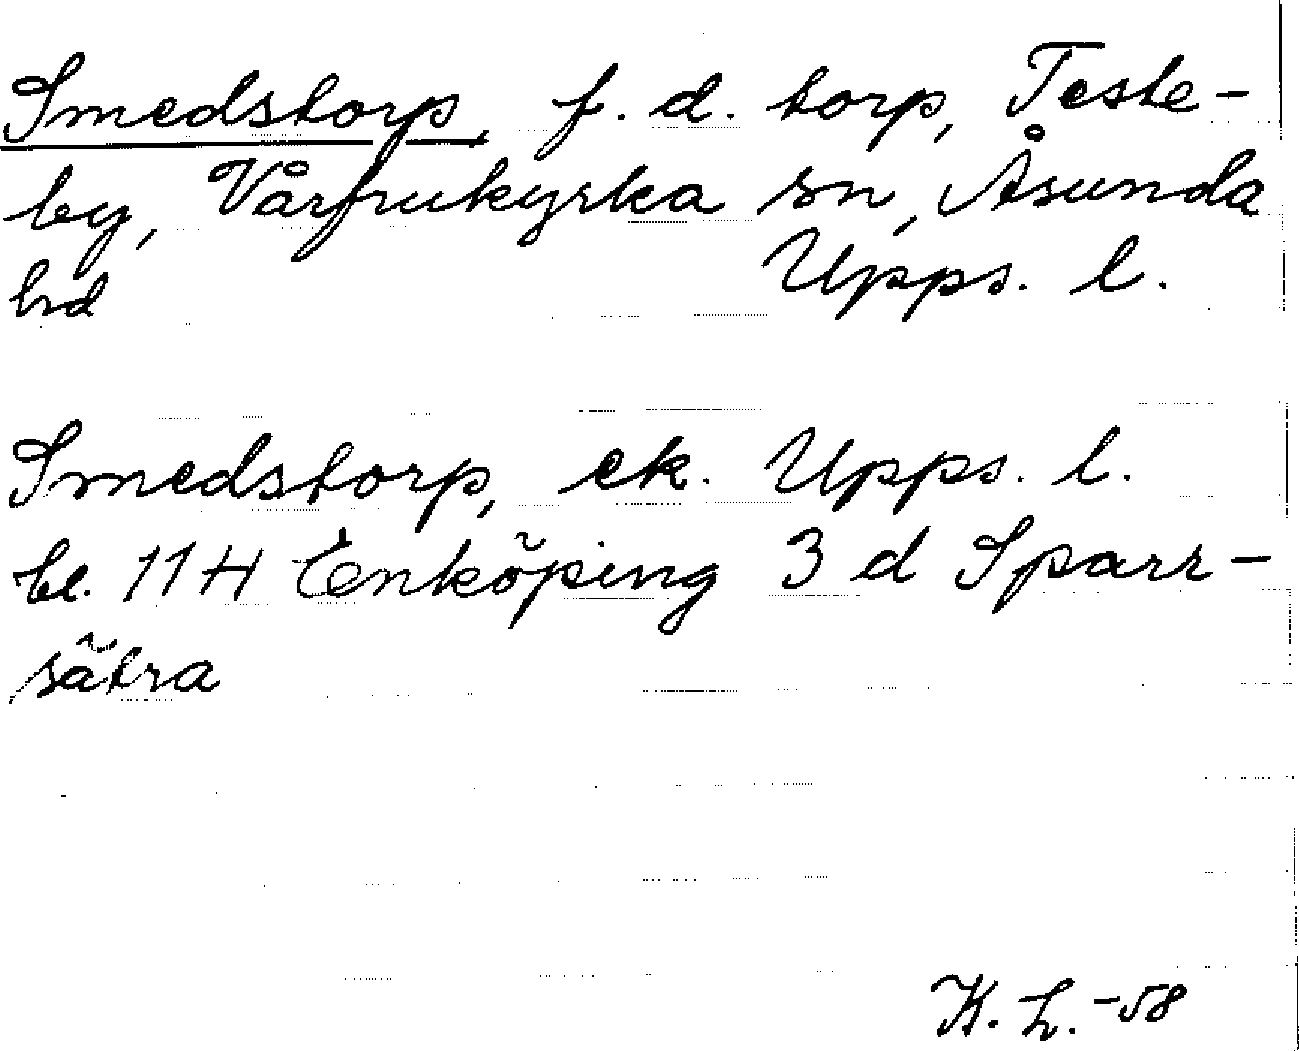 Smedstorp, f. d. torp, Teste-
by, Vårfrukyrka sn, Åsunda
hd Upps. l.
Smedstorp, ek. Upps. l.
bl. 11 H Enköping 3 d Sparr-
sätra
K. L. -58